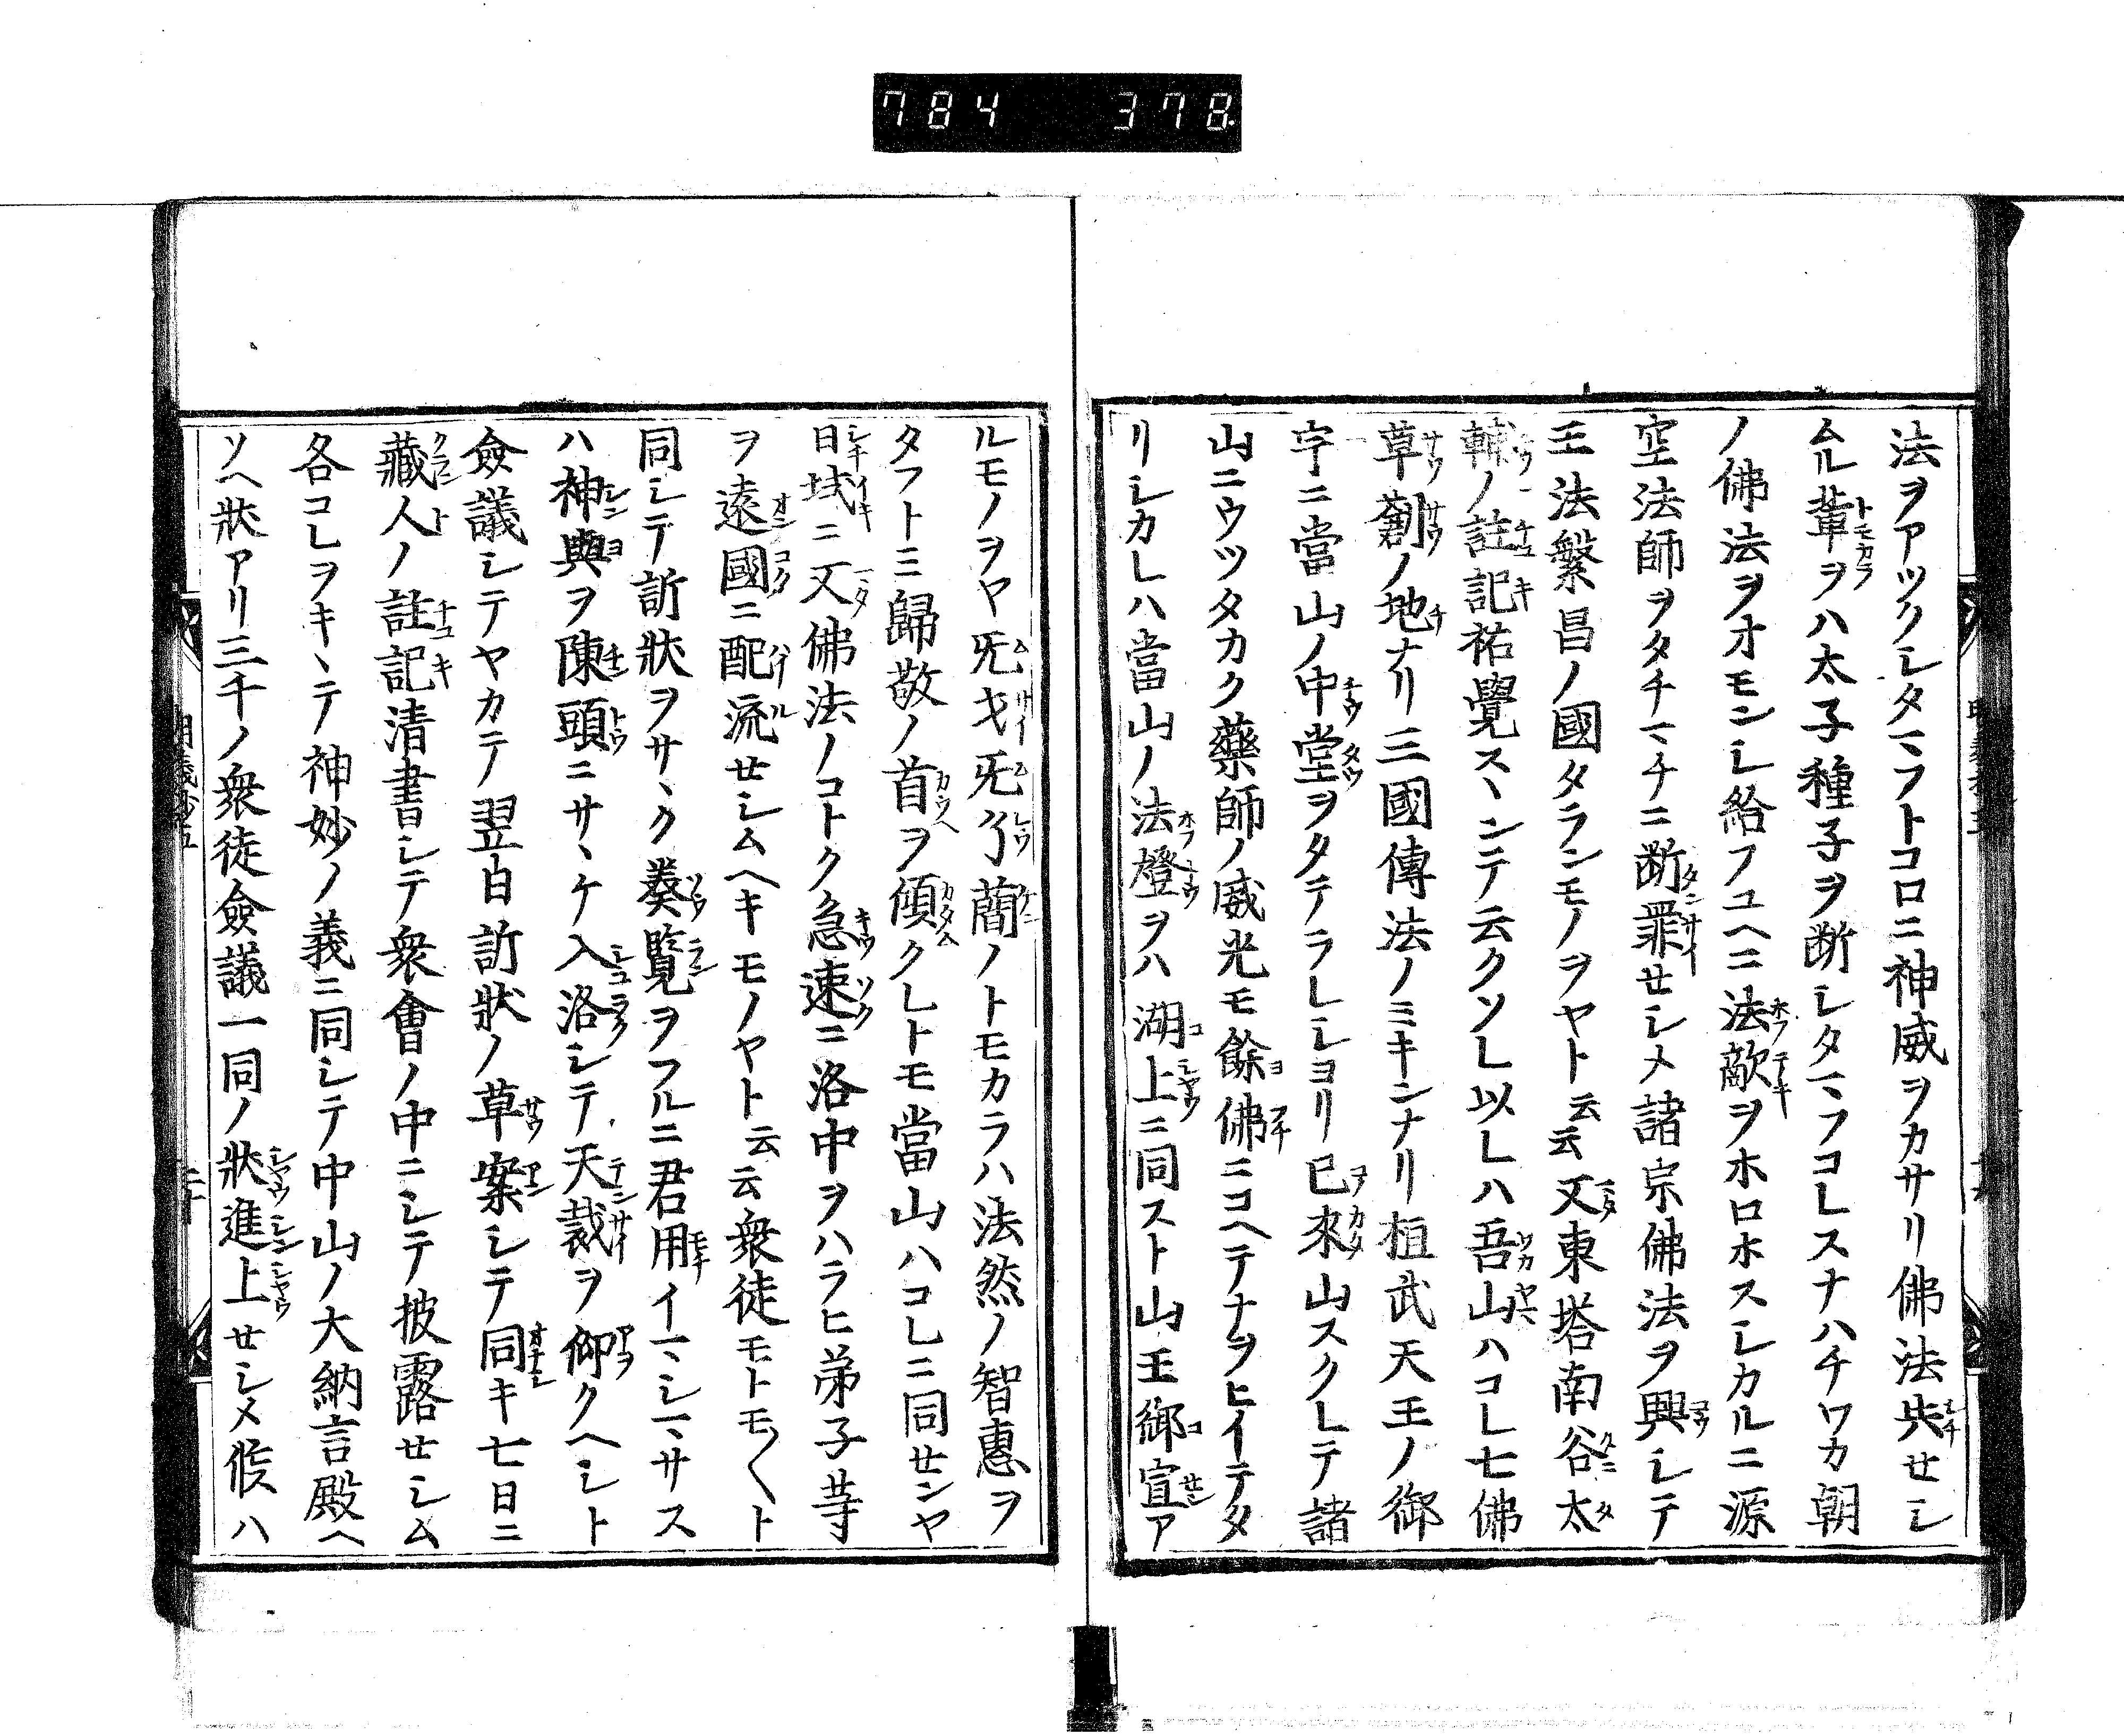 784 378
法ヲアツクシタマフトコロニ神威ヲカサリ佛法失せシ
ムル輩ヲハ太子種子ヲ断シタマフコレスナハチワカ朝
ノ佛法ヲオモンシ給フユヘニ法敵ヲホロホスシカルニ源
空法師ヲタチマチニ断罪せシメ諸宗佛法ヲ興シテ
王法繁昌ノ國タランモノヲヤト云云又東塔南谷太
輔ノ註記祐覺スヽンテ云クソレ以レハ吾山ハコレ七佛
草創ノ地ナリ三國傳法ノミキンナリ桓武天王ノ御
宇ニ當山ノ中堂ヲタテラレシヨリ已來山スクレテ諸
山ニウツタカク藥師ノ威光モ餘佛ニコヘテナヲヒイテタ
リシカレハ當山ノ法燈ヲハ湖上ニ同スト山王御宣ア
ルモノヲヤ旡才旡了蕳ノトモカラハ法然ノ智惠ヲ
タフトミ歸敬ノ首ヲ傾クレトモ當山ハコレニ同せンヤ
日域ニ又佛法ノコトク急速ニ洛中ヲハラヒ弟子等
ヲ遠國ニ配流せシムヘキモノヤト云云衆徒モトモ〱ト
同シテ訴狀ヲサヽク奏覧ヲフルニ君用イマシマサス
ハ神輿ヲ陳頭ニサヽケ入洛シテ天裁ヲ仰クヘシト
僉議シテヤカテ翌日訴狀ノ草案シテ同キ七日ニ
藏人ノ註記清書シテ衆會ノ中ニシテ披露せシム
各コレヲキヽテ神妙ノ義ニ同シテ中山ノ大納言殿ヘ
ソヘ狀アリ三千ノ衆徒僉議一同ノ狀進上せシメ候ハ